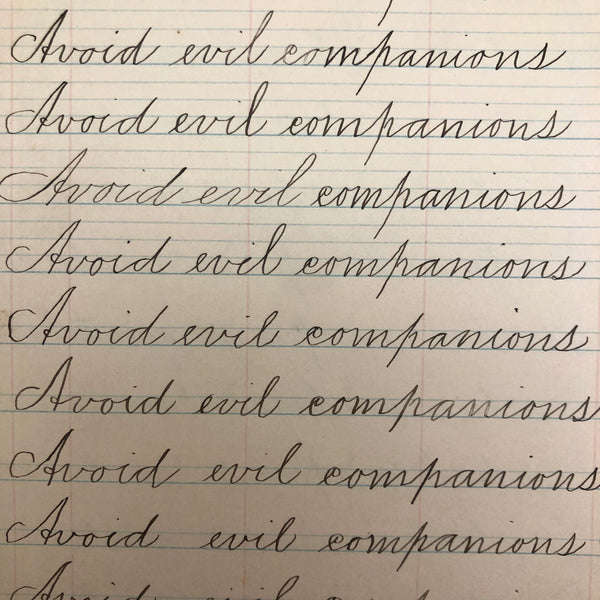 Avoid evil companions
Avoid evil companions
Avoid evil companions
Avoid evil companions
Avoid evil companions
Avoid evil companions
Avoid evil companions
Avoid evil companions